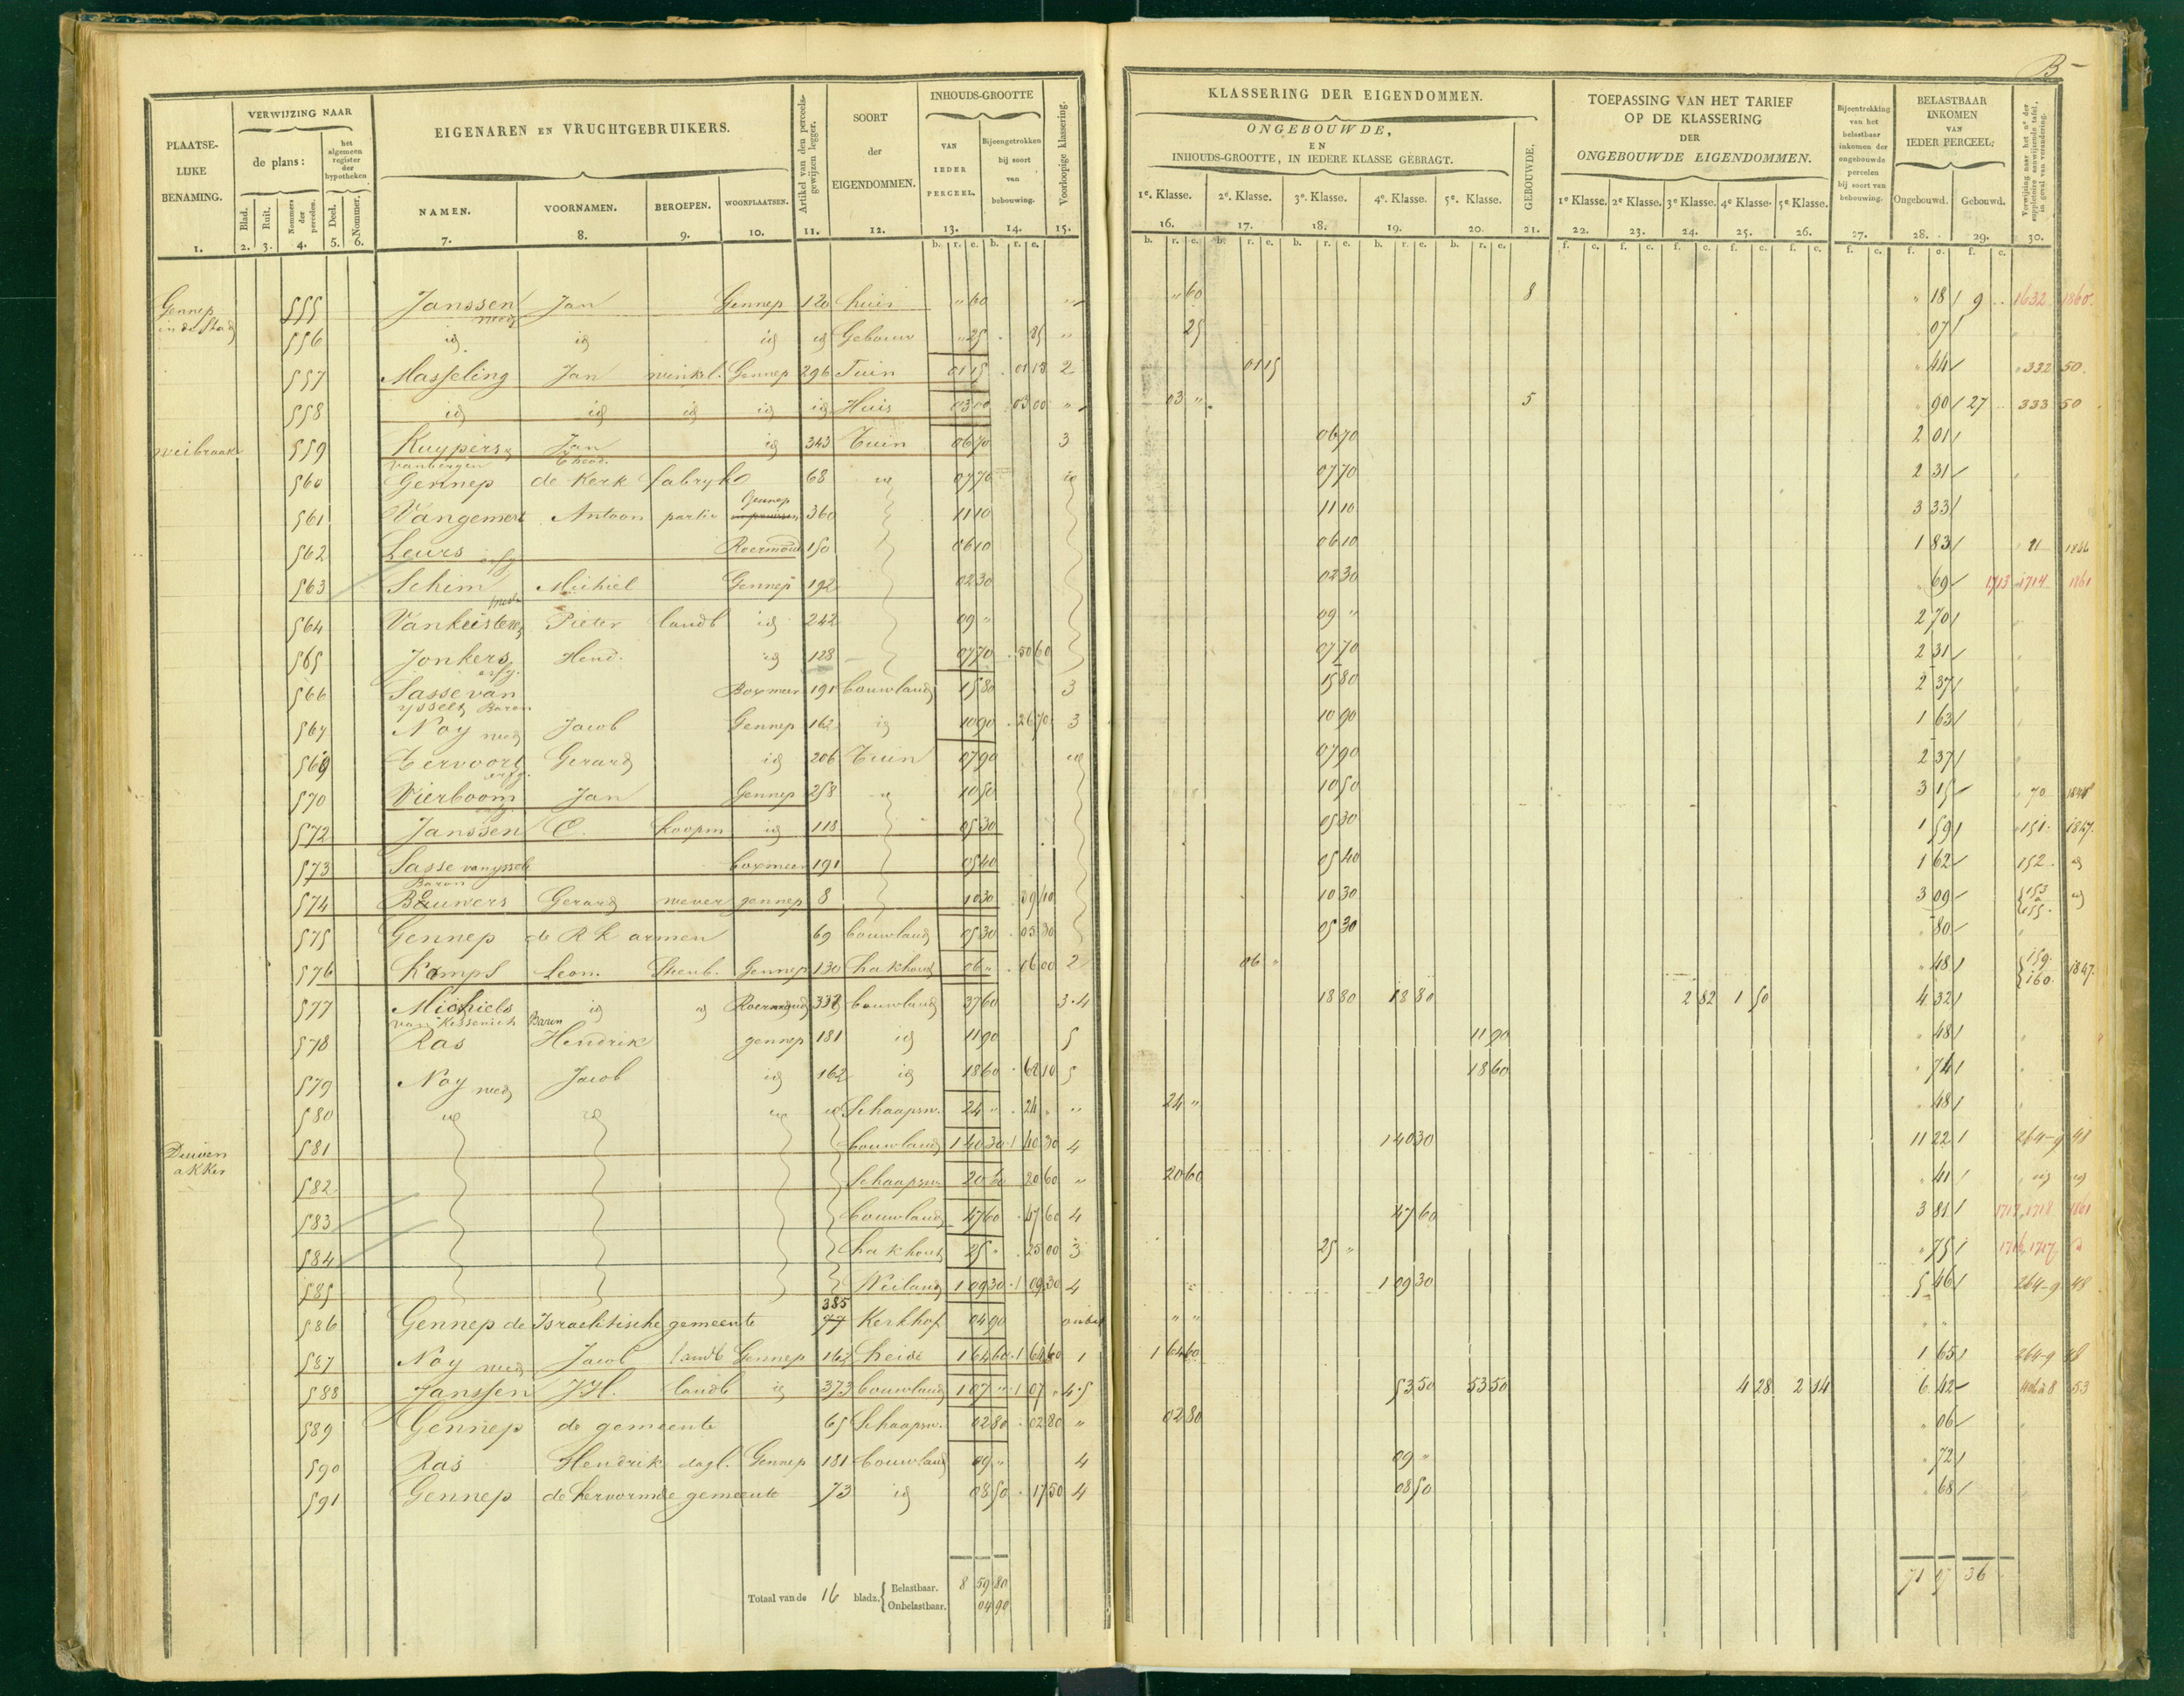 B
PLAATSE-
LIJKE
BENAMING.
VERWIJZING NAAR
de plans:
het algemeen register der hypotheken
Blad. Ruit. Nommers der perceelen. Deel. Nommer.
EIGENAREN EN VRUCHTGEBRUIKERS.
NAMEN. VOORNAMEN. BEROEPEN. WOONPLAATSEN.
Artikel van den perceels-gewijzen legger.
SOORT
der
EIGENDOMMEN.
INHOUDS-GROOTTE
VAN IEDER PERCEEL.
Bijeengetrokken bij soort van bebouwing.
Voorloopige klassering.
1. 2. 3. 4. 5. 6. 7. 8. 9. 10. 11. 12. 13. 14. 15.
b. r. e. b. r. e.
KLASSERING DER EIGENDOMMEN.
ONGEBOUWDE,
EN
INHOUDS-GROOTTE, IN IEDERE KLASSE GEBRAGT.
GEBOUWDE.
1e. Klasse. 2e. Klasse. 3e. Klasse. 4e. Klasse. 5e. Klasse.
16. 17. 18. 19. 20. 21.
TOEPASSING VAN HET TARIEF
OP DE KLASSERING
DER
ONGEBOUWDE EIGENDOMMEN.
1e Klasse. 2e Klasse. 3e Klasse. 4e Klasse. 5e Klasse.
22. 23. 24. 25. 26.
Bijeentrekking van het belastbaar inkomen der ongebouwde percelen bij soort van bebouwing.
27.
BELASTBAAR
INKOMEN
VAN
IEDER PERCEEL:
Ongebouwd. Gebouwd.
28. 29. 30.
Gennep in de Stad 555 Janssen wed Jan Gennep 120 huis " 60 " " 60 8 " 18 9 1632 1860
556 id id id id Gebouw " 25 25 " 25 07
557 Masseling Jan winkel. Gennep 296 Tuin 01 15 01 15 2 01 15 44 332 50
558 id id id id id Huis 03 00 03 00 " 03 " 5 90 27 333 50
559 Kuypers Jan id 343 Tuin 06 70 3 06 70 2 01
vanbergen Theod.
560 Gennep de Kerk fabryk 68 id 07 70 id 07 70 2 31
561 Vangemert Antoon partic Gennep 360 11 10 11 10 3 33
562 Leurs erfg Roermond 150 06 10 06 10 1 83 21 1846
563 Schim Michiel Gennep 192 02 30 02 30 69 1713 1714 1861
564 Vankeisteren Pieter landb id 242 09 " 09 " 2 70
565 Jonkers erfg. Hend. id 128 07 70 50 60 07 70 2 31
566 Sassevan ysselt Baron Boxmeer 191 bouwland 15 80 3 15 80 2 37
567 Noy wed Jacob Gennep 162 id 10 90 26 70 3 10 90 1 63
569 Tervoort erfg. Gerard id 206 Tuin 07 90 id 07 90 2 37
570 Vierboom Jan Gennep 258 id 10 50 10 50 3 15 70 1845
572 Janssen C. koopm id 118 05 30 05 30 1 59 151 1847
573 Sasse vanysselt Baron boxmeer 191 05 40 05 40 1 62 152 id
574 Brouwers Gerard wever gennep 8 10 30 59 10 10 30 3 09 153 a 155 id
575 Gennep de R K armen 69 bouwland 05 30 05 30 05 30 80
576 Kamps Leon. Gennep 130 hakhout 06 " 06 00 2 06 " 48 159 160 1847
577 Michiels van Kessenich Baron id id Roermond 337 bouwland 37 60 3.4 18 80 18 80 2 82 1 50 4 32
578 Ras Hendrik gennep 181 id 11 90 5 11 90 48
579 Noy wed Jacob id 162 id 18 60 68 10 5 18 60 74
580 id id id id Schaapsw. 24 " 24 " " 24 " 48
Duiven akker 581 bouwland 1 40 30 1 40 30 4 1 40 30 11 22 264-9 48
582 Schaapsw. 20 60 20 60 " 20 60 41 id id
583 bouwland 47 60 47 60 4 47 60 3 81 1717, 1718 1861
584 hakhout 25 " 25 00 3 25 " 75 1716, 1717 id
585 Weiland 1 09 30 1 09 30 4 1 09 30 5 46 264-9 48
586 Gennep de Israelitische gemeente 385 77 Kerkhof 04 90 onbel " "
587 Noy wed Jacob landb Gennep 162 heide 1 64 60 1 64 60 1 1 64 60 1 65 264-9 48
588 Janssen J.H. landb id 373 bouwland 1 07 " 1 07 " 4.5 53 50 53 50 4 28 2 14 6 42 53
589 Gennep de gemeente 65 Schaapsw. 02 80 02 80 " 02 80 06
590 Ras Hendrik dagl. Gennep 181 bouwland 09 " 4 09 " 72
591 Gennep de hervormde gemeente 73 id 08 50 17 50 4 08 50 68
weibraak
Totaal van de 16 bladz. Belastbaar. 8 59 80
Onbelastbaar. 04 90
71 17 36